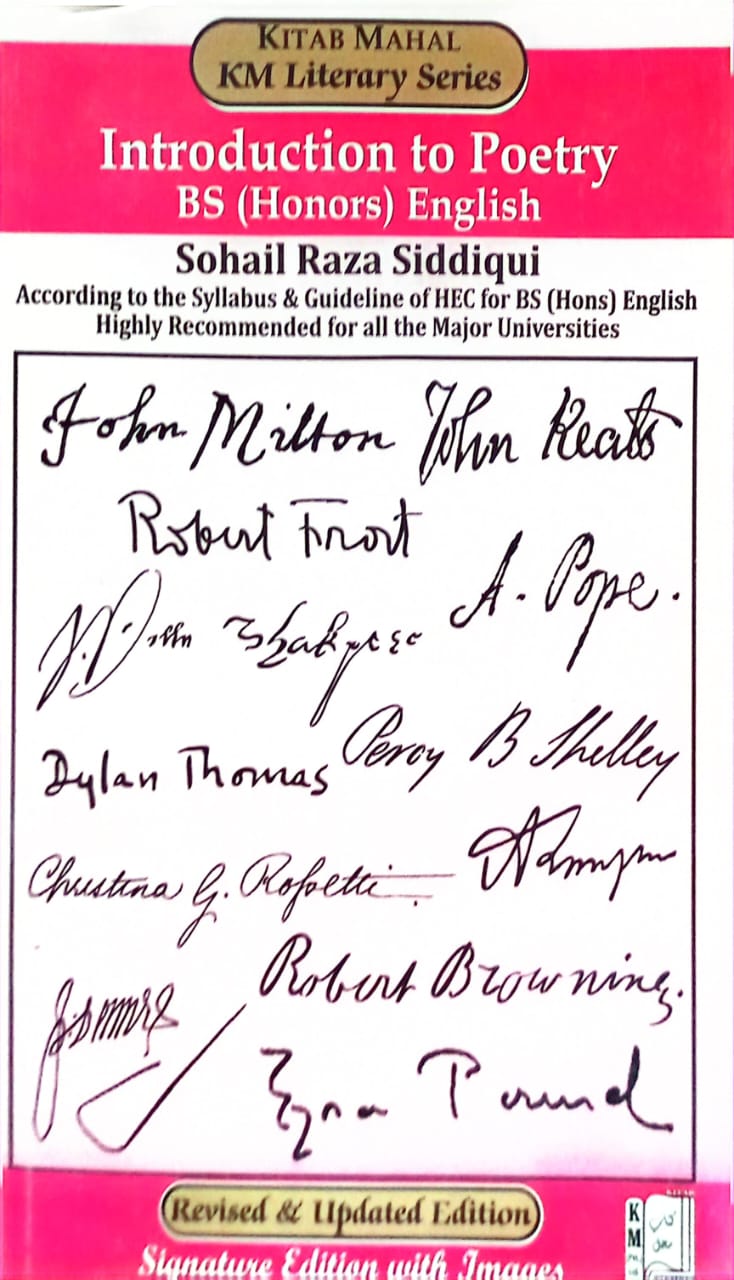 KITAB MAHAL
KM Literary Series
Introduction to Poetry
BS (Honors) English
Sohail Raza Siddiqui
According to the Syllabus & Guideline of HEC for BS (Hons) English
Highly Recommended for all the Major Universities
John Milton John Keats
Robert Frost
A. Pope.
Dylan Thomas
Percy B Shelley
Christina G. Rossetti
Robert Browning.
Ezra Pound
Revised & Updated Edition
K
M
Signature Edition with Images